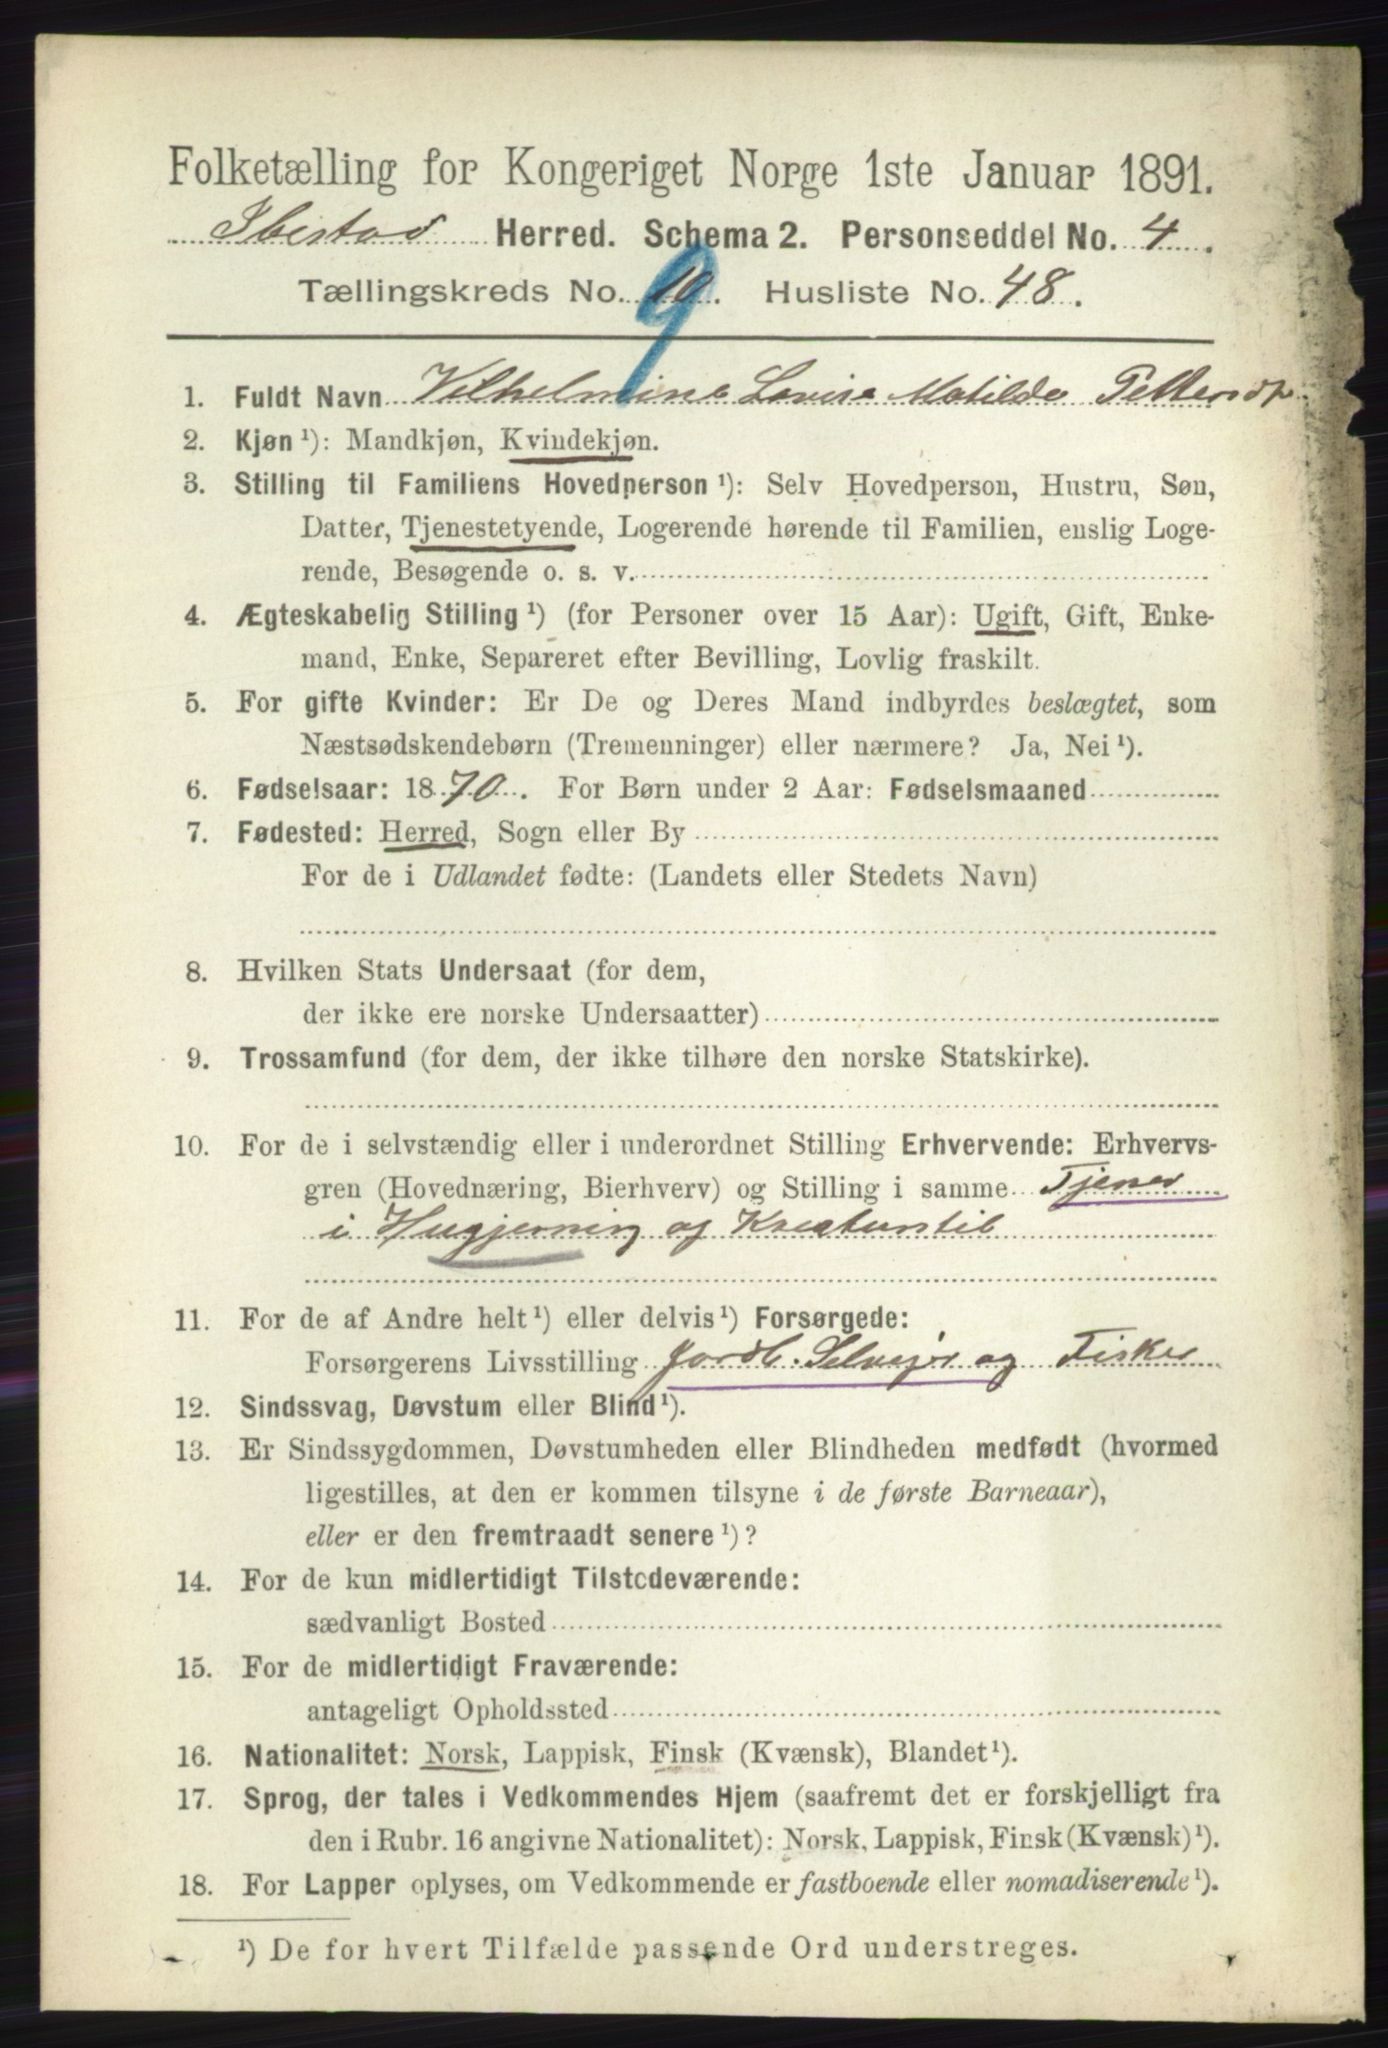 Folketælling for Kongeriget Norge 1ste Januar 1891.
Ibestad Herred. Schema 2. Personseddel No. 4.
Tællingskreds No. 10. Husliste No. 48.
9
1. Fuldt Navn Vilhelmine Lovise Matilde
2. Kjøn ¹): Mandkjøn, Kvindekjøn.
3. Stilling til Familiens Hovedperson ¹): Selv Hovedperson, Hustru, Søn,
Datter, Tjenestetyende, Logerende hørende til Familien, enslig Loge-
rende, Besøgende o. s. v.
4. Ægteskabelig Stilling ¹) (for Personer over 15 Aar): Ugift, Gift, Enke-
mand, Enke, Separeret efter Bevilling, Lovlig fraskilt.
5. For gifte Kvinder: Er De og Deres Mand indbyrdes beslægtet, som
Næstsødskendebørn (Tremenninger) eller nærmere? Ja, Nei ¹).
6. Fødselsaar: 1870. For Børn under 2 Aar: Fødselsmaaned
7. Fødested: Herred, Sogn eller By
For de i Udlandet fødte: (Landets eller Stedets Navn)
8. Hvilken Stats Undersaat (for dem,
der ikke ere norske Undersaatter)
9. Trossamfund (for dem, der ikke tilhøre den norske Statskirke).
10. For de i selvstændig eller i underordnet Stilling Erhvervende: Erhvervs-
gren (Hovednæring, Bierhverv) og Stilling i samme Tjener
i Husgjerning og Kreaturstil
11. For de af Andre helt ¹) eller delvis ¹) Forsørgede:
Forsørgerens Livsstilling Jordb. Selveier og Fisker
12. Sindssvag, Døvstum eller Blind ¹).
13. Er Sindssygdommen, Døvstumheden eller Blindheden medfødt (hvormed
ligestilles, at den er kommen tilsyne i de første Barneaar),
eller er den fremtraadt senere ¹)?
14. For de kun midlertidigt Tilstedeværende:
sædvanligt Bosted
15. For de midlertidigt Fraværende:
antageligt Opholdssted
16. Nationalitet: Norsk, Lappisk, Finsk (Kvænsk), Blandet ¹).
17. Sprog, der tales i Vedkommendes Hjem (saafremt det er forskjelligt fra
den i Rubr. 16 angivne Nationalitet): Norsk, Lappisk, Finsk (Kvænsk) ¹).
18. For Lapper oplyses, om Vedkommende er fastboende eller nomadiserende ¹).
¹) De for hvert Tilfælde passende Ord understreges.